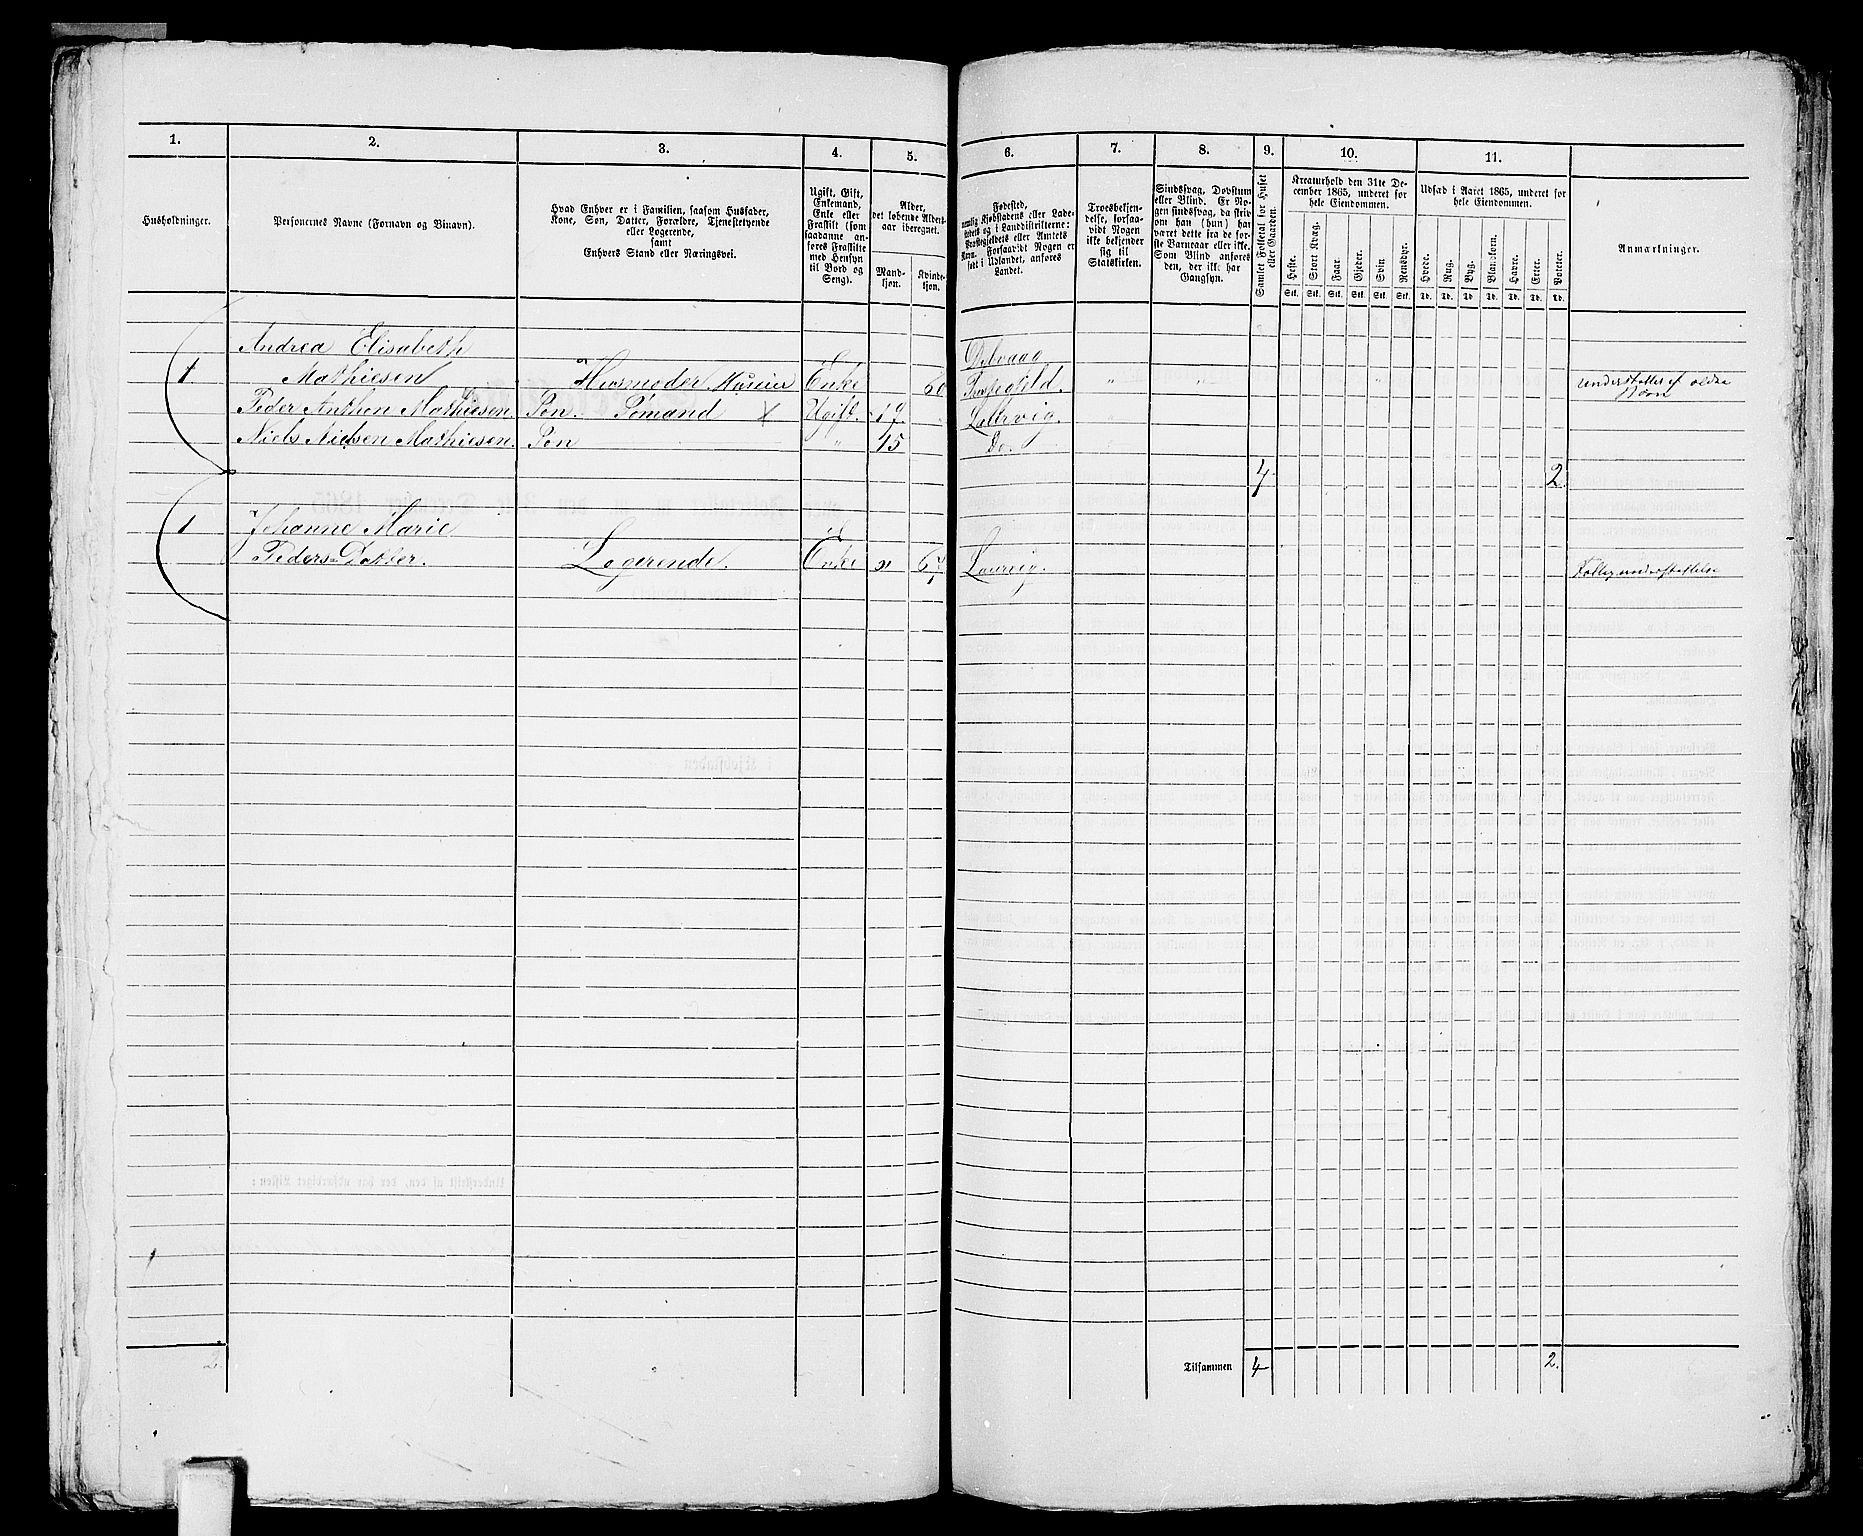 1.
2.
3.
4.
5.
6.
7.
8.
9.
10.
11.
Husholdninger.
Personernes Navne (Fornavn og Binavn).
Hvad Enhver er i Familien, saasom Husfader,
Kone, Søn, Datter, Forældre, Tjenestetyende
eller Logerende,
samt
Enhvers Stand eller Næringsvei.
Ugift, Gift,
Enkemand,
Enke eller
Fraskilt (som
saadanne an-
føres Fraskilte
med Hensyn
til Bord og
Seng).
Alder,
det løbende Alders-
aar iberegnet.
Mand-
kjøn.
Kvinde-
kjøn.
Fødested,
nemlig Kjøbstadens eller Lade-
stedets og i Landdistrikterne:
Præstegjeldets eller Amtets
Navn. Forsaavidt Nogen er
født i Udlandet, anføres
Landet.
Troesbekjen-
delse, forsaa-
vidt Nogen
ikke bekjender
sig til
Statskirken.
Sindssvag, Døvstum
eller Blind. Er No-
gen sindssvag, da skriv
om han (hun) har
været dette fra de før-
ste Barneaar eller ikke.
Som Blind anføres
den, der ikke har
Gangsyn.
Samlet Folketal for Huset
eller Gaarden.
Kreaturhold den 31te De-
cember 1865, underet for
hele Eiendommen.
Heste.
Stort Kvæg.
Faar.
Gjeder.
Svin.
Rensdyr.
Stk. Stk. Stk. Stk. Stk. Stk.
Udsæd i Aaret 1865, underet for
hele Eiendommen.
Hvede.
Rug.
Byg.
Blandkorn.
Havre.
Erter.
Poteter.
Td. Td. Td. Td. Td. Td. Td.
Anmærkninger.
Andrea Elisabeth
1 Mathiesen Husmoder Enke understøttet af
Peder Anthon Mathiesen Søn. Sømand X Ugift 19 Laurvig
Niels Nielsen Mathiesen. Søn " 15 Do
4 2
1 Johanne Marie
Peders-Datter. Logerende. Enke " Laurvig.
Tilsammen 4 2.
2